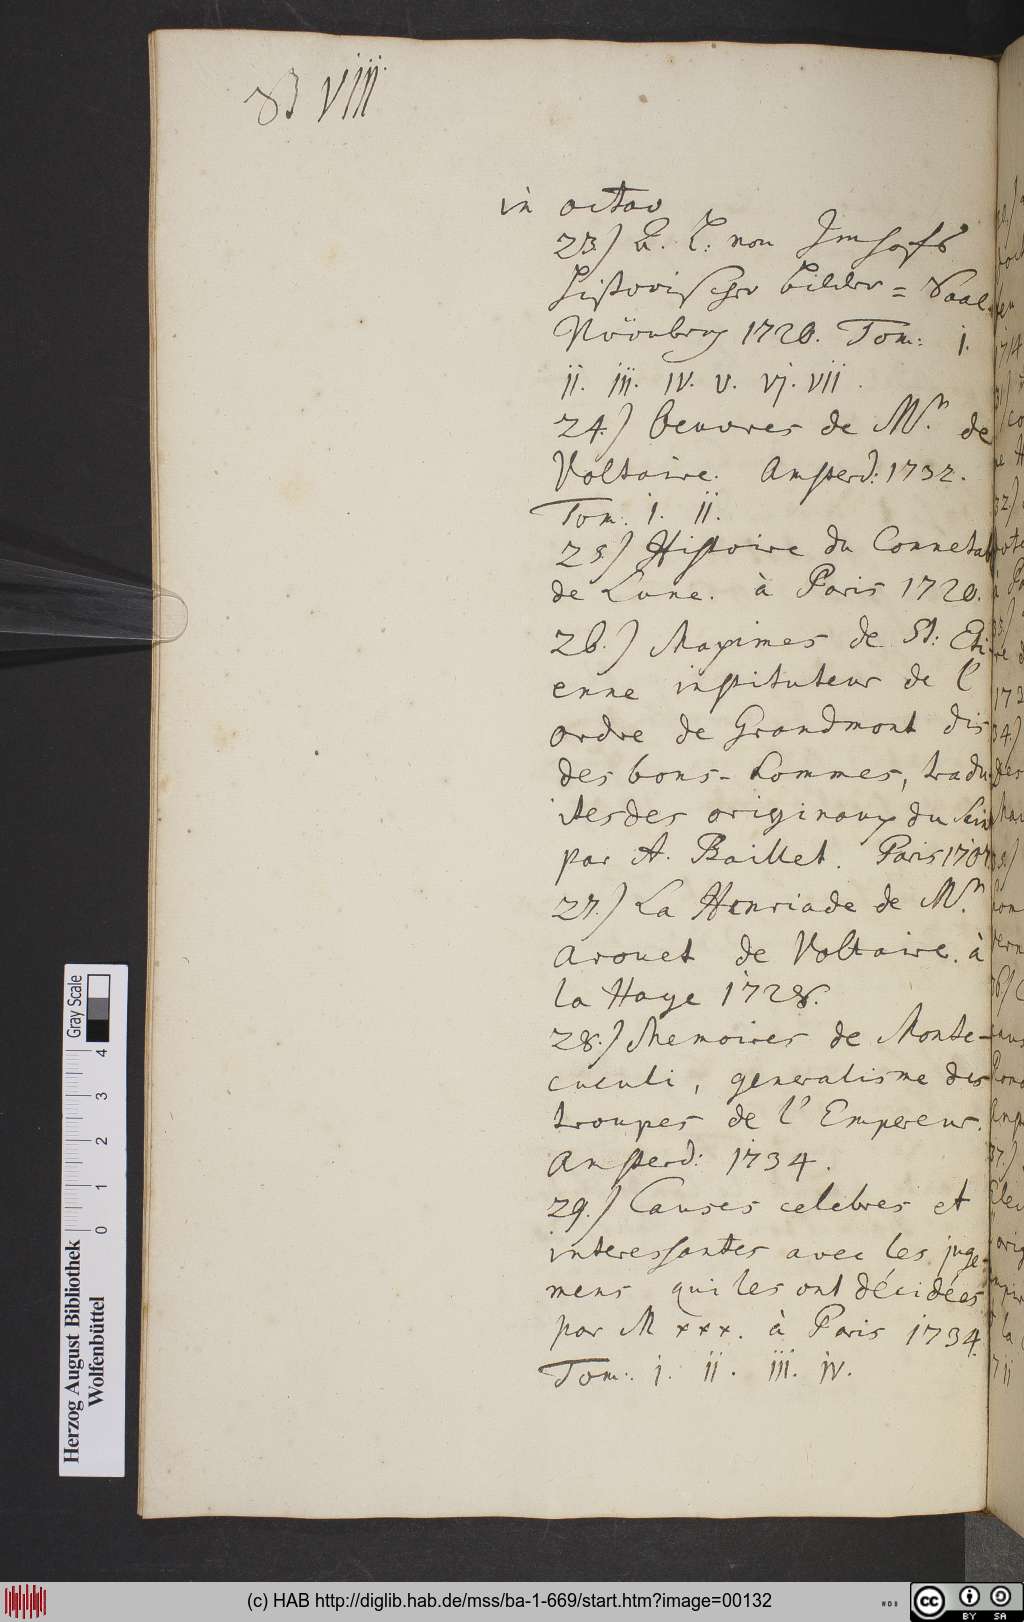 VIII
in octav
23) A. L: von Imhofs
historischer bilder = Saal.
Nürnberg 1720. Tom: I.
II. III. IV. V. VI. VII.
24.) Oeuvres de Mr. de
Voltaire. Amsterd: 1732.
Tom: I. II.
25.) Histoire du Connetab
de Lune. à Paris 1720.
26.) Maximes de St: Eti-
enne instituteur de l'
ordre de Grandmont dis
des bons-hommes, tradu-
ites des originaux du
par A. Baillet. Paris 1707
27.) La Henriade de Mr.
Arouet de Voltaire. à
la Haye 1728.
28.) Memoires de Monte-
cuculi, generalisme des
troupes de l'Empereur.
Amsterd: 1734.
29.) Causes celebres et
interessantes avec les juge-
mens qui les ont décidées
par M xxx. à Paris 1734.
Tom: I. II. III. IV.
Gray Scale
0 1 2 3 4
Herzog August Bibliothek
Wolfenbüttel
(c) HAB http://diglib.hab.de/mss/ba-1-669/start.htm?image=00132
cc BY SA